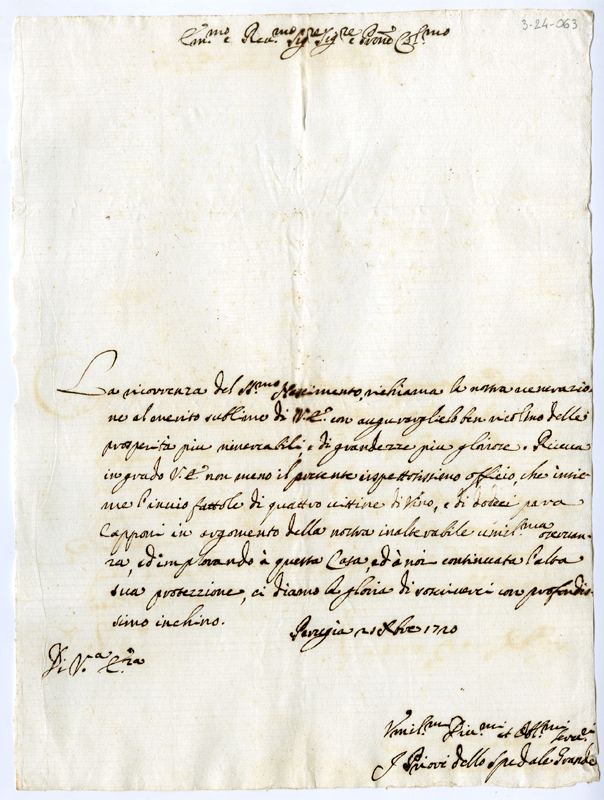 3-24-063
Em.mo e Rev.mo Sig.re Sig.re e Prone Col.mo
La ricorrenza del S.mo Nascimento, richiama la nostra venerazio-
ne al merito sublime di V.E. con augurargliela ben ricolmo delle
prosperità più rimarcabili, e di grandezze più gloriose. Riceva
in grado V.E. non meno il presente rispettosissimo officio, che insie-
me l'invio fattole di quattro vittine di Vino, e di dodeci para
Capponi in argomento della nostra inalterabile umil.ma osservan-
za, ed implorando à questa Casa, ed à noi continuata l'alta
sua protezzione, ci diamo la gloria di soscriverci con profondis-
simo inchino.
Perugia 21 Xbre 1720
Di V.ra E.za
Umil.mi Div.mi et Obl.mi Serv.ri
I Priori dello Spedale Grande